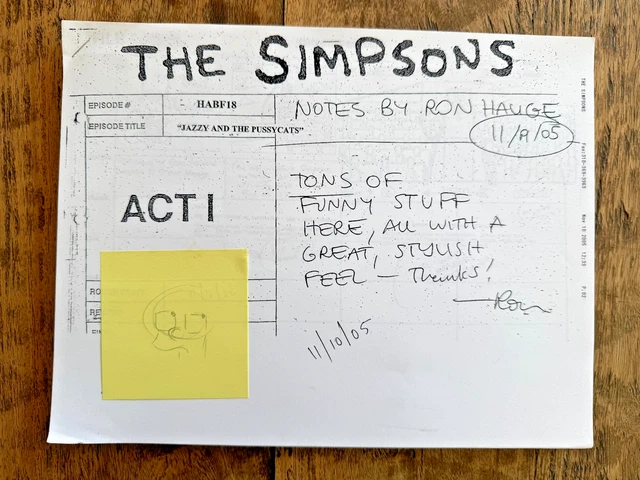 THE SIMPSONS
EPISODE # HABF18
EPISODE TITLE "JAZZY AND THE PUSSYCATS"
NOTES BY RON HAUGE
11/9/05
ACT I
TONS OF
FUNNY STUFF
HERE, ALL WITH A
GREAT, STYLISH
FEEL — Thanks!
—Ron
11/10/05
RO
RE
THE SIMPSONS Nov 10 2005 12:35 P.02